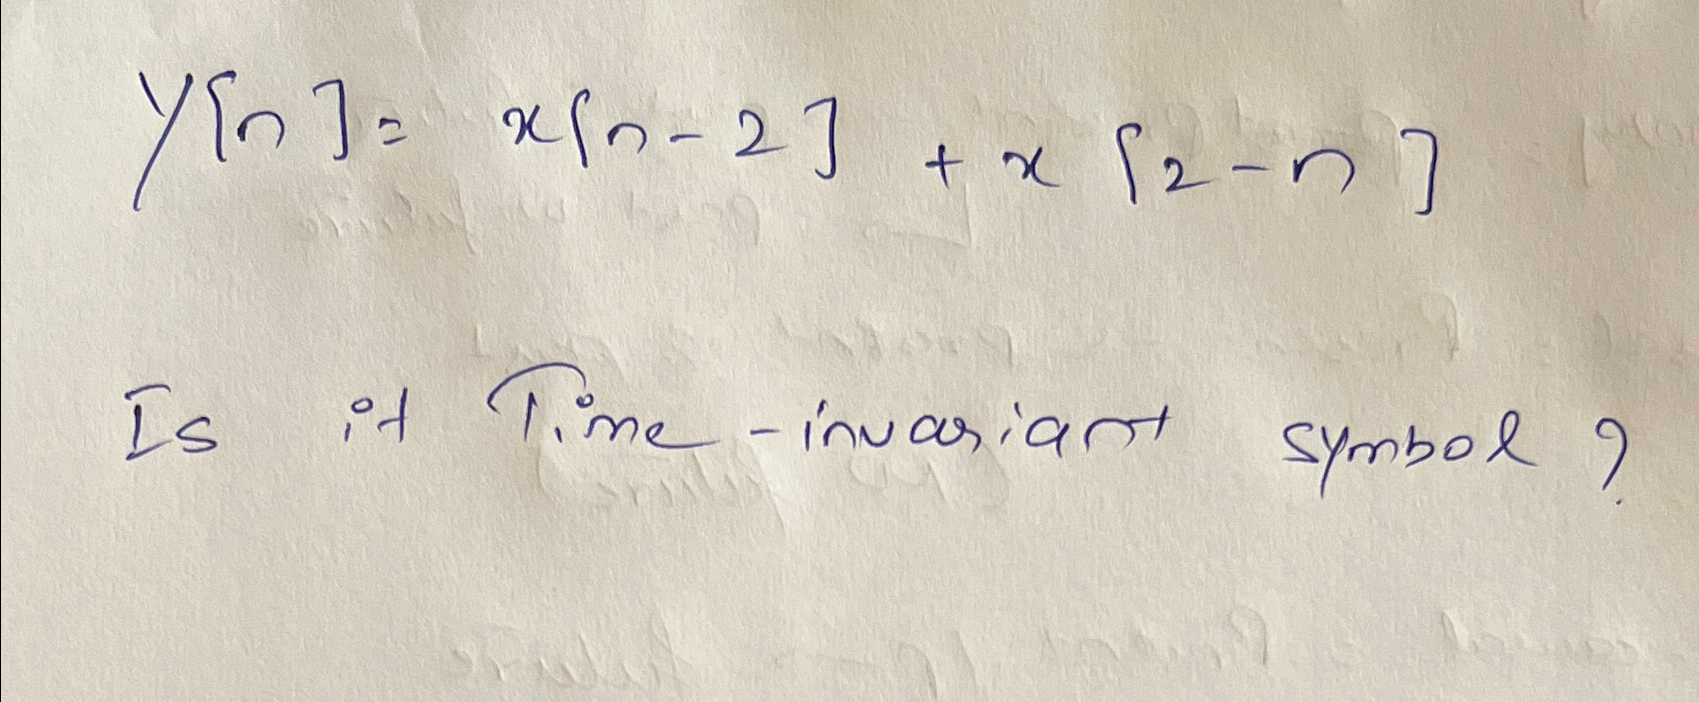 y[n] = x[n-2] + x[2-n]
Is it Time-invariant symbol ?